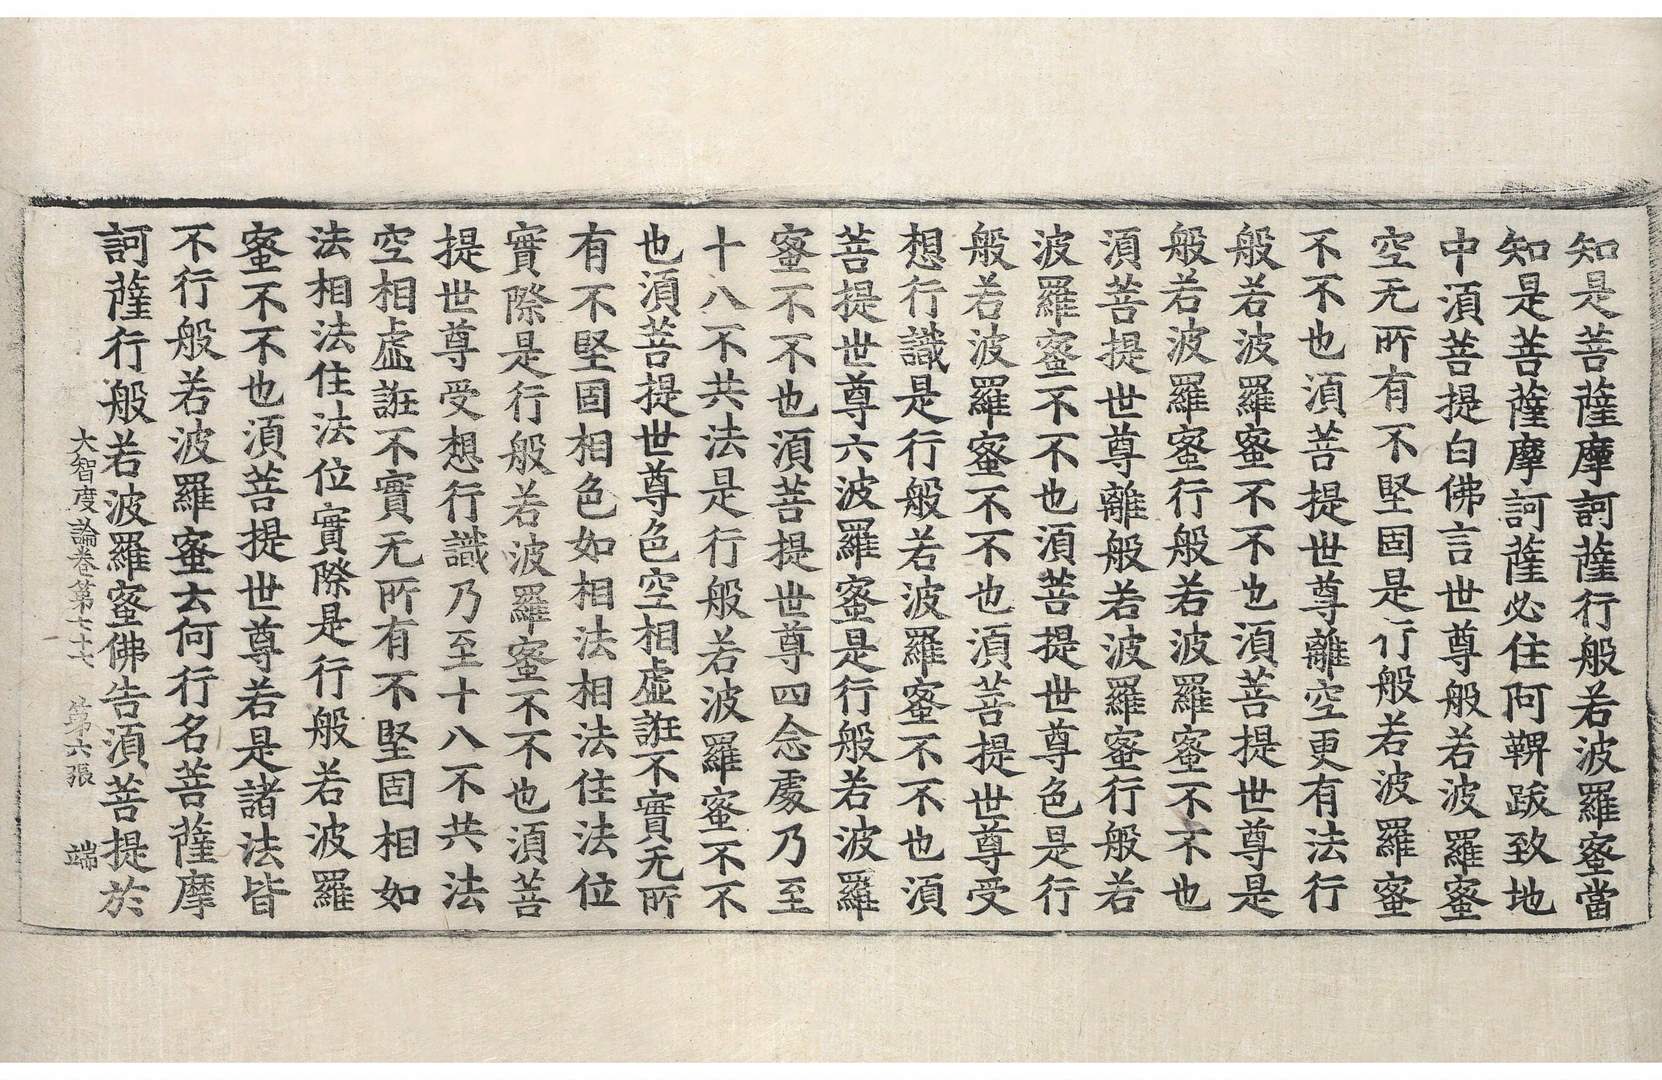 知是菩薩摩訶薩行般若波羅蜜當
知是菩薩摩訶薩必住阿鞞跋致地
中湏菩提白佛言世尊般若波羅蜜
空无所有不堅固是行般若波羅蜜
不不也湏菩提世尊離空更有法行
般若波羅蜜不不也湏菩提世尊是
般若波羅蜜行般若波羅蜜不不也
湏菩提世尊離般若波羅蜜行般若
波羅蜜不不也湏菩提世尊色是行
般若波羅蜜不不也湏菩提世尊受
想行識是行般若波羅蜜不不也湏
菩提世尊六波羅蜜是行般若波羅
蜜不不也湏菩提世尊四念處乃至
十八不共法是行般若波羅蜜不不
也湏菩提世尊色空相虛誑不實无所
有不堅固相色如相法相法住法位
實際是行般若波羅蜜不不也湏菩
提世尊受想行識乃至十八不共法
空相虛誑不實无所有不堅固相如
法相法住法位實際是行般若波羅
蜜不不也湏菩提世尊若是諸法皆
不行般若波羅蜜云何行名菩薩摩
訶薩行般若波羅蜜佛告湏菩提於
大智度論卷第六十七 第六張 端